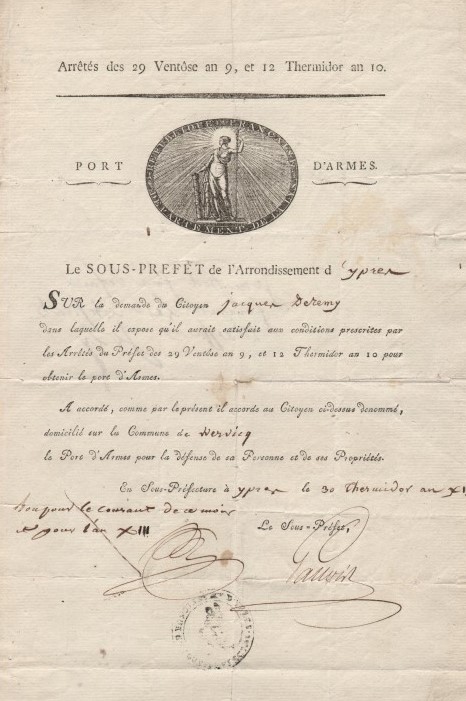 Arrêtés des 29 Ventôse an 9, et 12 Thermidor an 10.
REPUBLIQUE FRANÇAISE
DEPARTEMENT DE LA LYS
PORT D'ARMES.
Le SOUS-PREFÊT de l'Arrondissement d'ypres
SUR la demande du Citoyen jacques Deremy
dans laquelle il expose qu'il aurait satisfait aux conditions prescrites par
les Arrêtés du Préfet des 29 Ventôse an 9, et 12 Thermidor an 10 pour
obtenir le port d'Armes.
A accordé, comme par le présent il accorde au Citoyen ci-dessus denommé,
domicilié sur la Commune de Wervicq
le Port d'Armes pour la défense de sa Personne et de ses Propriétés.
En Sous-Préfecture à ypres le 30 Thermidor an XI
bon pour le courant de ce mois
et pour l'an XIII
Le Sous-Préfet,